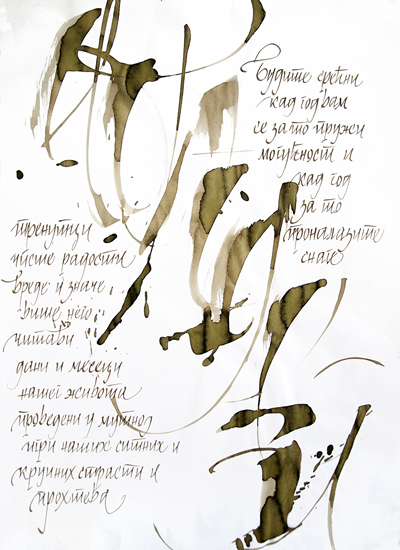 Будите срећни
кад год вам
се за то пружи
могућност и
кад год
за то
проналазите
снаге
тренутци
чисте радости
вреде и значе
више него
читави
дани и месеци
нашег живота
проведени у мутној
игри наших ситних и
крупних страсти и
прохтева